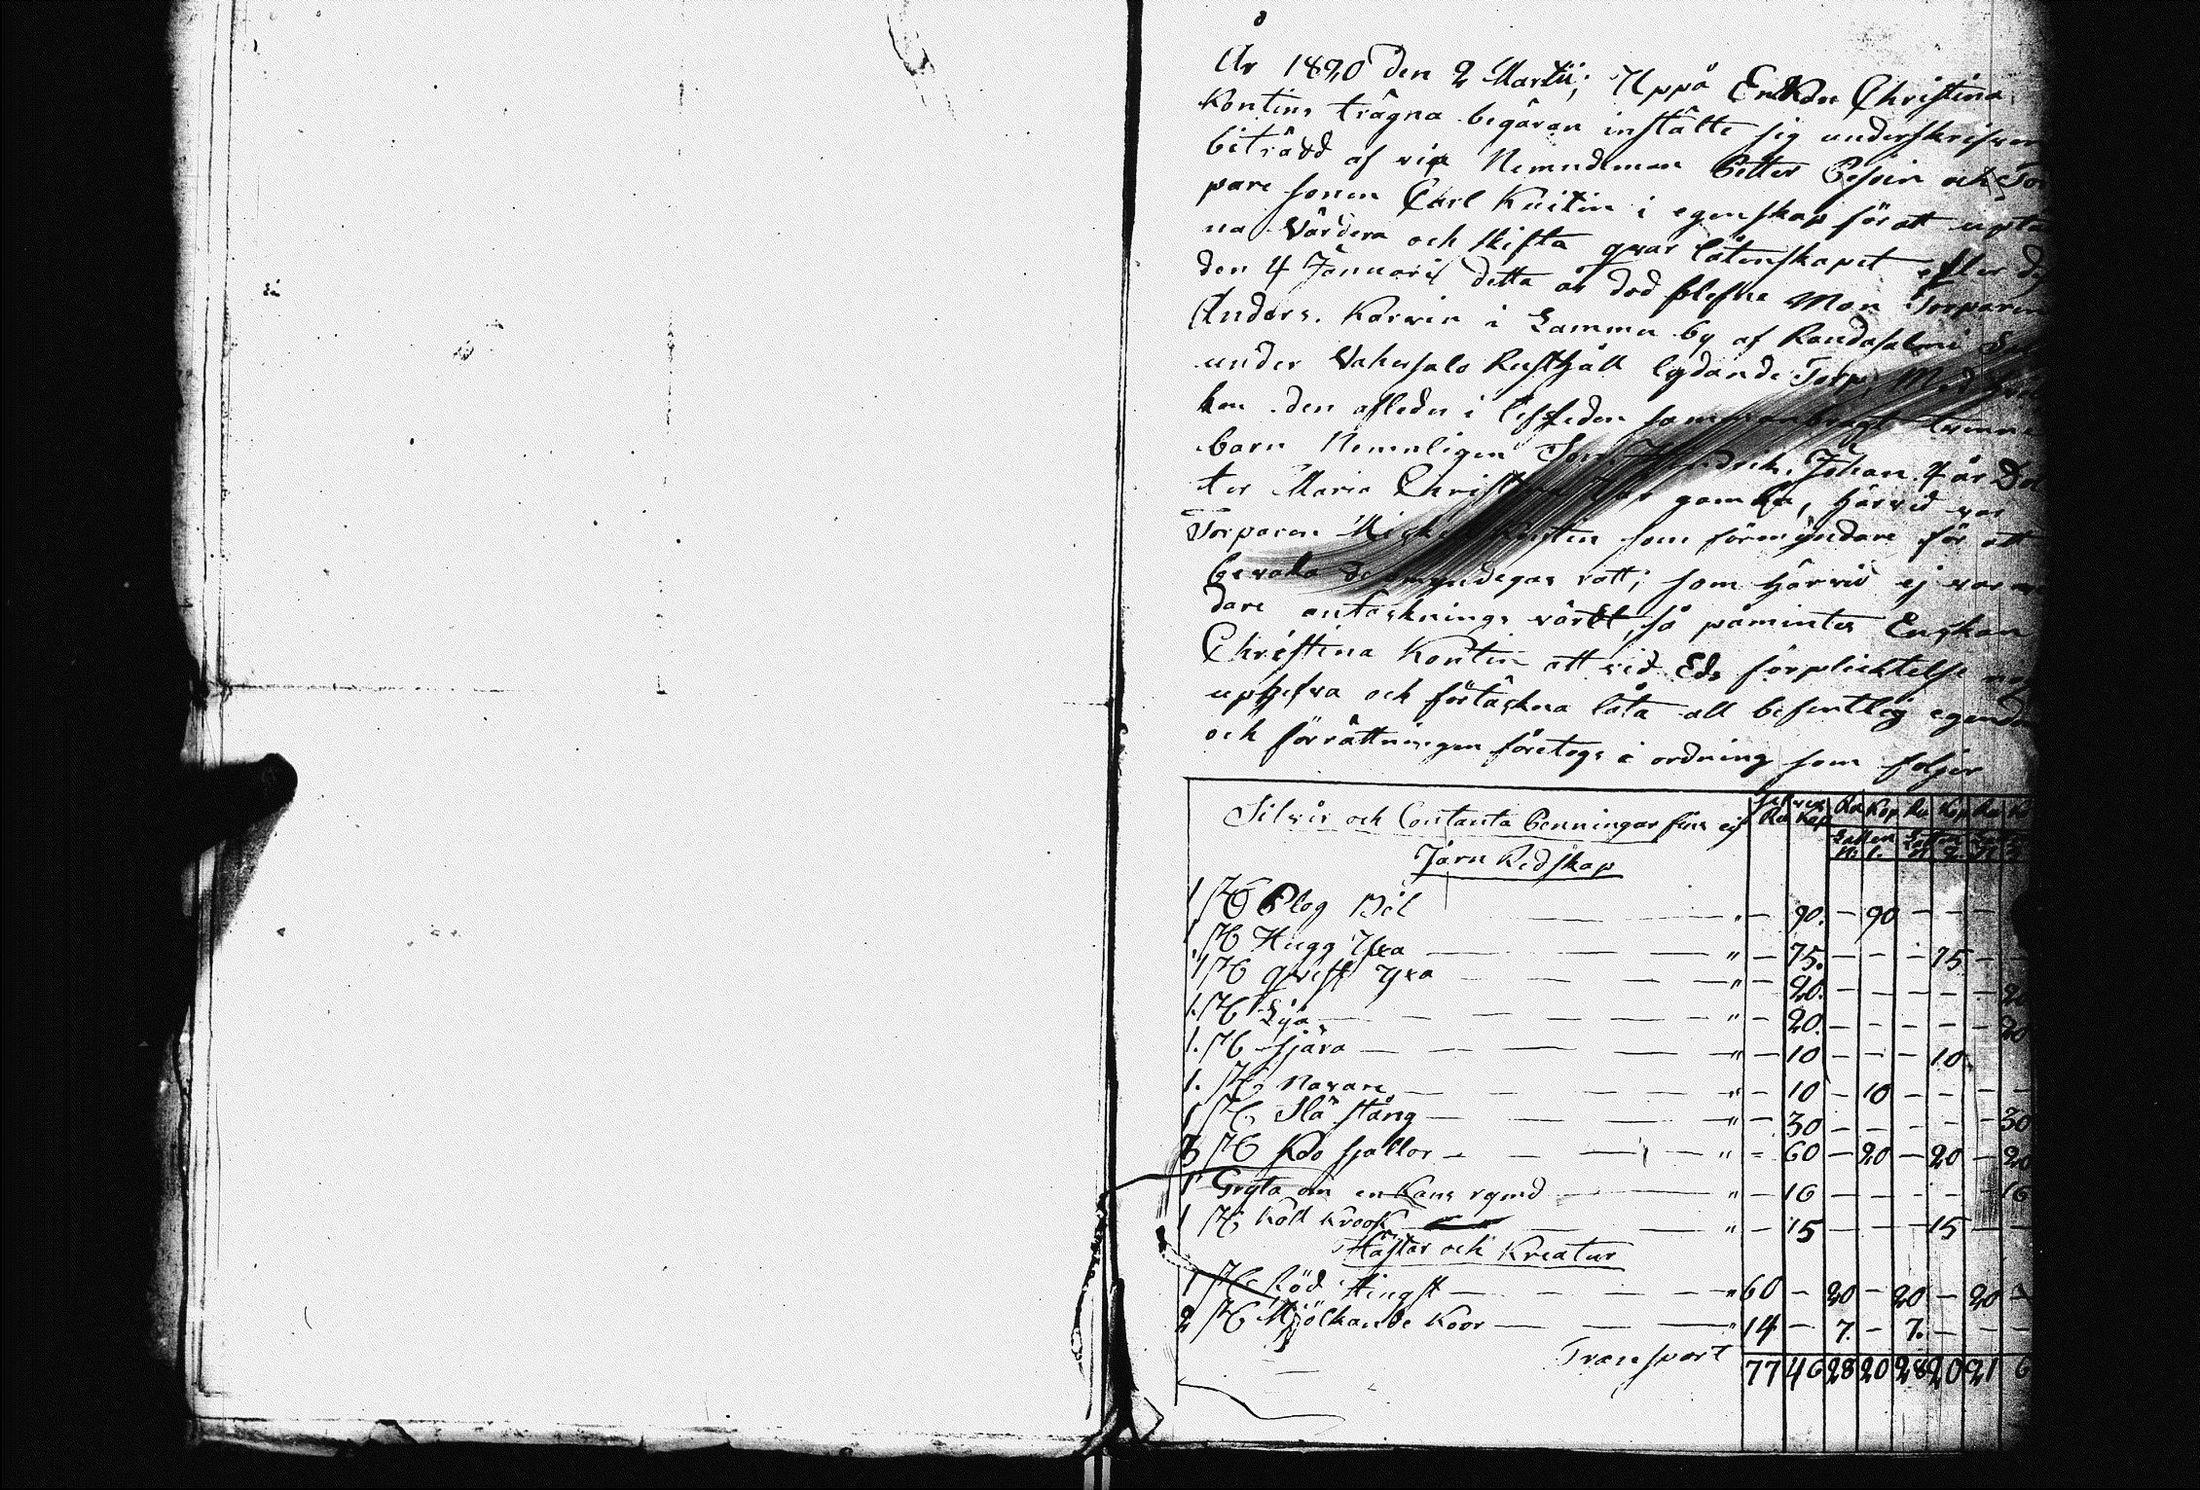 År 1820 den 2 Martii; Uppå Enkan Christina
Kontins trägna begäran instälte sig underskrifven
biträdd af vice Nemndeman Petter Pesoin och Tor
pare sonen Carl Kuitin i egenskap för att upta
na Värdera och skifta qvar låtenskapet efter den
den 4 Januarii detta år död blefne Man Torparen
Anders Karvin i Samma by af Randasalmi
under Vahersalo Rusthåll lydande Torp, Med
ken den afledne i lifstiden sammanbragt tvenne
barn Nemnligen Son Hendrik Johan 4 år
ter Maria Christina gamla, härvid var
Torparen Mickel Kontin som förmyndare för att
bevaka de omyndegas rätt; som härvid ej var
dare antäcknings värdt, så påmintes Enckan
Christina Kontin att vid Eds förplicktelse
uppgefva och förtäckna låta all befintlig egendom
och förrättningen företogs i ordning som foljer
Silver och Contanta Penningar fins ej
Silver Ru Kop Ru Kop Ru Kop Ru
Rub Kop Lotten Lotten
N: 1. N 2.
Järn Redskap
1 St Plog Bil " — 90. — 90 — — —
1 St Hugg Yxa — " — 75. — — — 75 — —
1 St qvist Yxa — " — 20. — — — — — 20
1. St Lya — " — 20. — — — — — 20
1. St Skjära — " — 10 — — — 10
1. St Navare — " — 10 — 10 — — — —
1 St Slå stång — " — 30 — — — — — 30
3 St Ko skallor — " — 60 — 20 — 20 — 20
1 Gryta om en Kans rymd — " — 16 — — — — — 16
1 St Koll Krook — " — 15 — — — 15 — —
Hästar och Kreatur
1 St Röd Hingst — " 60 — 20 — 20 — 20 —
2 St Mjölkande Koor — " 14 — 7. — 7. — — —
Transport 77 46 28 20 28 20 21 6